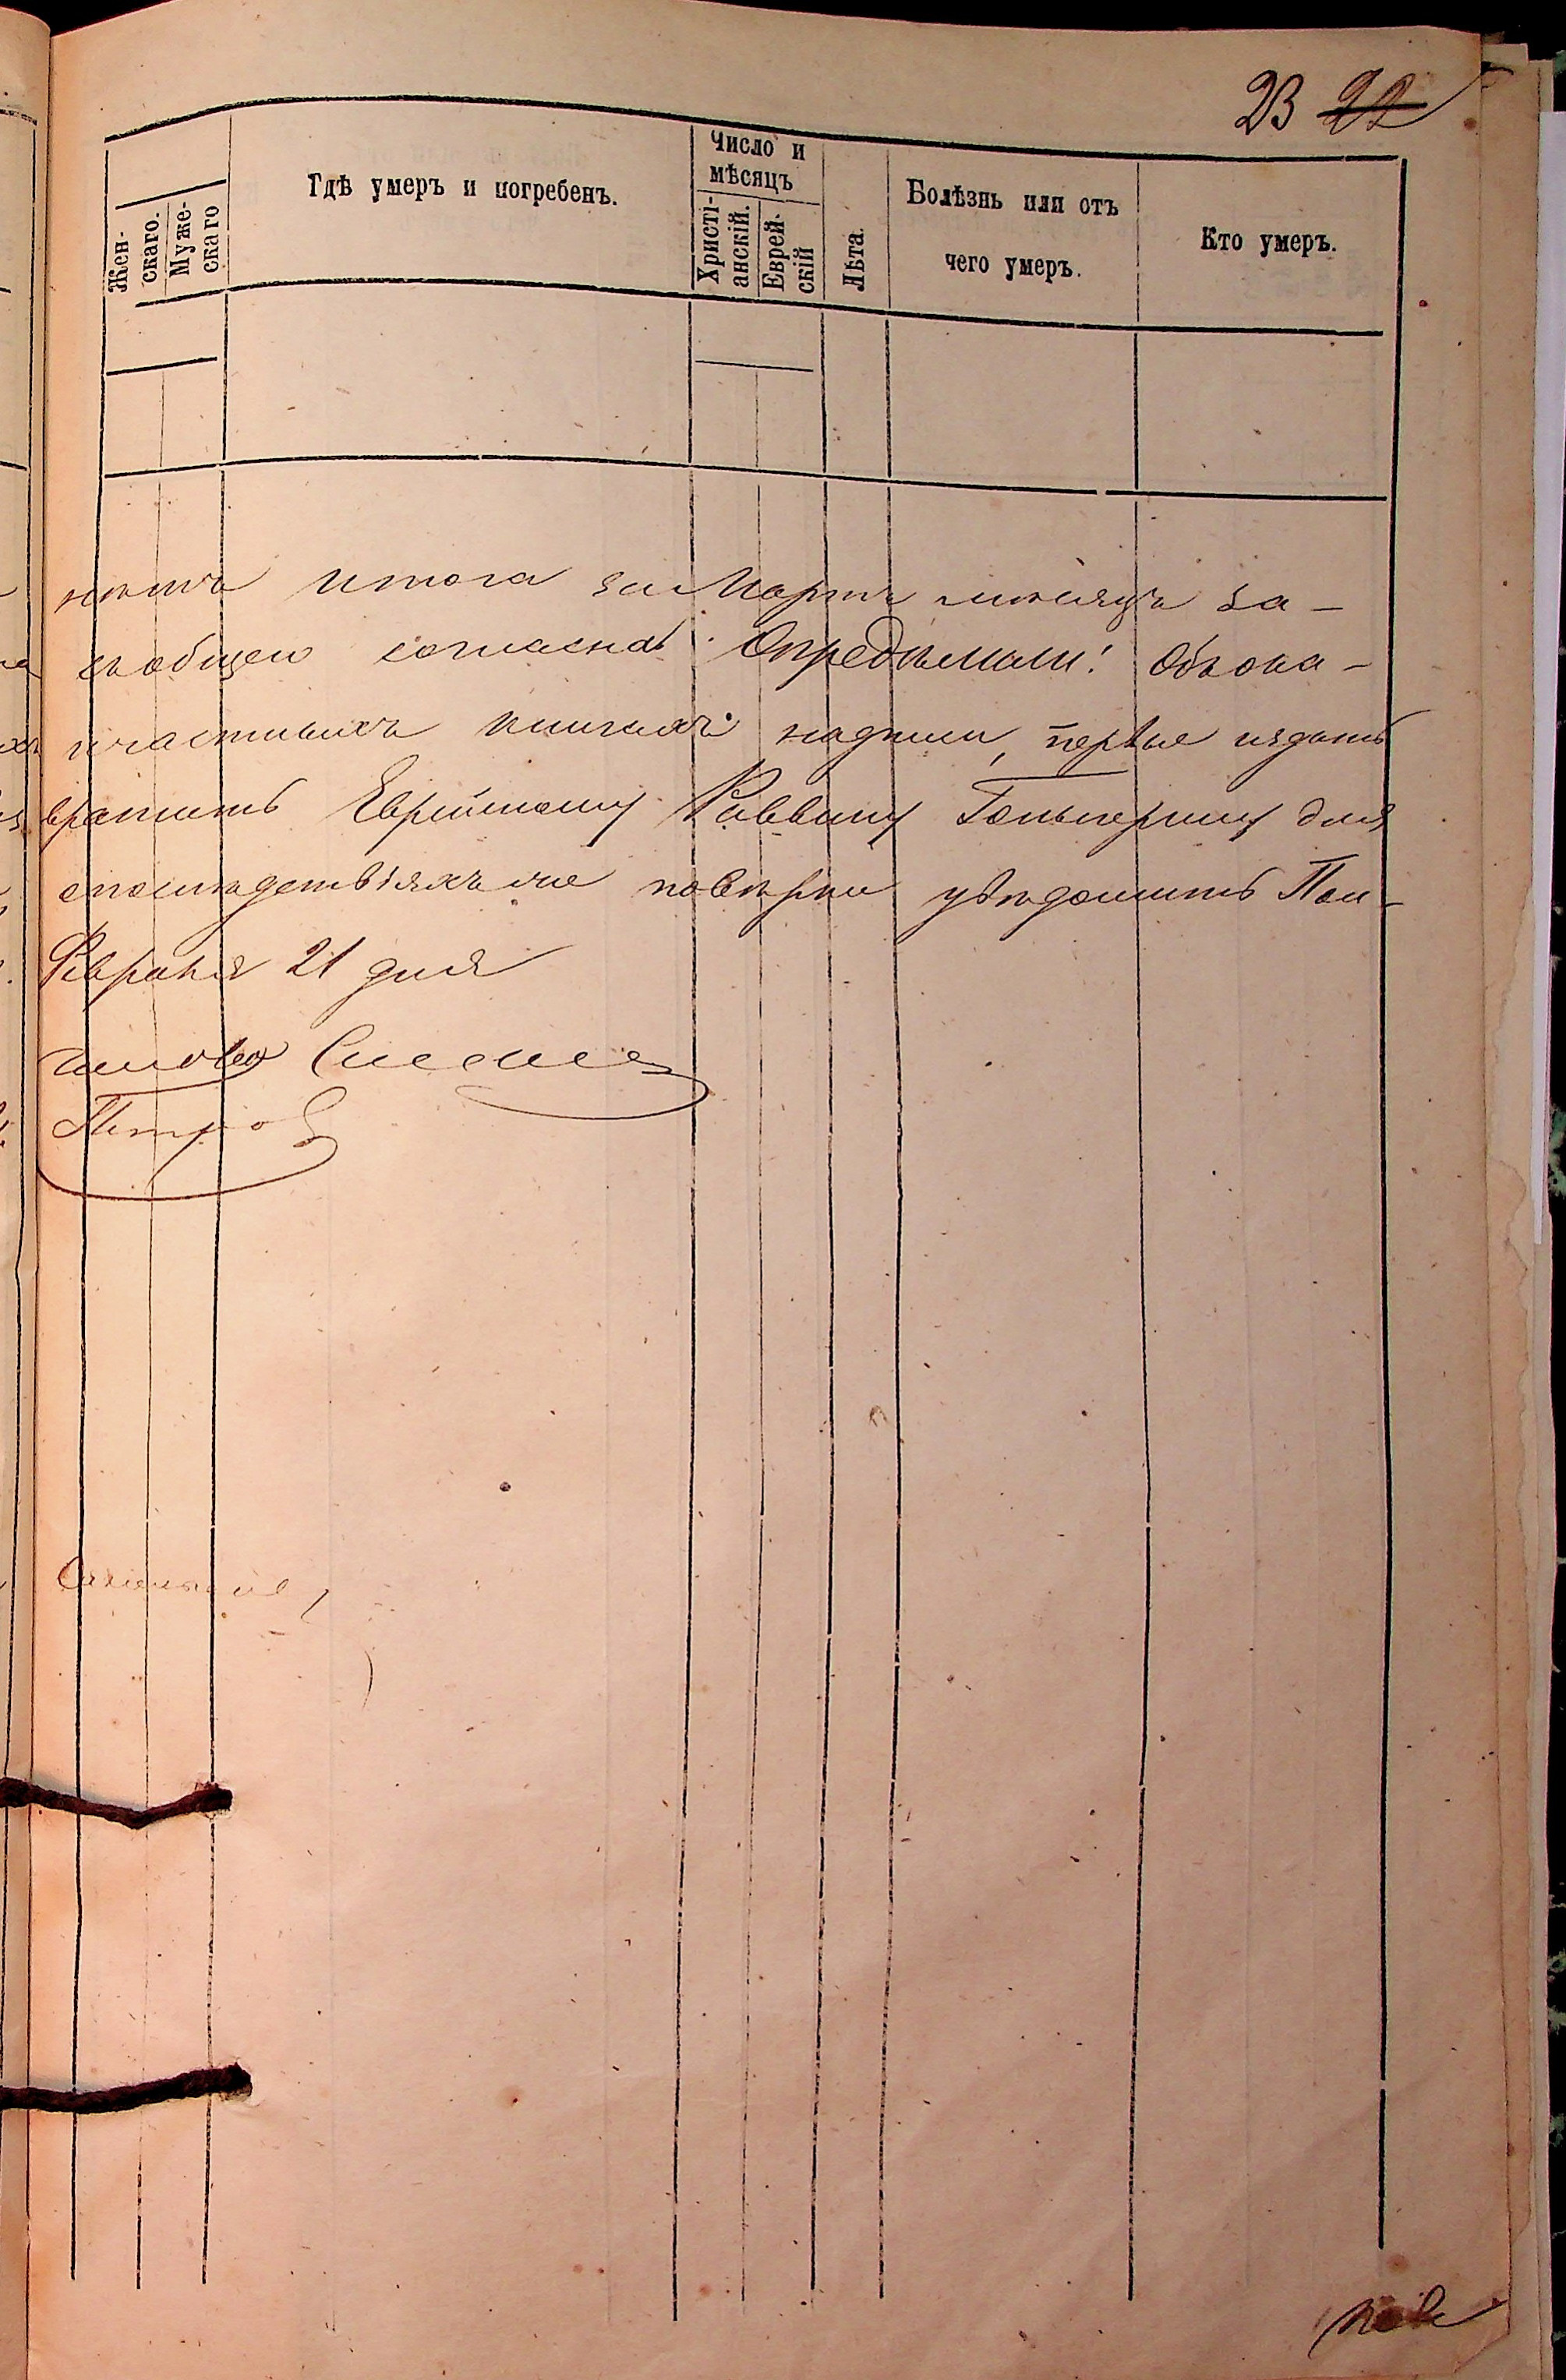 23 22
Жен-
скаго.
Муже-
скаго
Гдѣ умеръ и погребенъ.
Число и
мѣсяцъ
Христі-
анскій.
Еврей-
скій
Лѣта.
Болѣзнь или отъ
чего умеръ.
Кто умеръ.
нѣтъ итога за Мартъ мѣсяцъ за-
общею согласна. Опредѣлили: Объ ока-
книгахъ надписи, первые издать
вратить Еврейскому Раввину Гольперину для
о послѣдствіяхъ же повѣрки увѣдомить Пол-
Февраля 21 дня
Петровъ